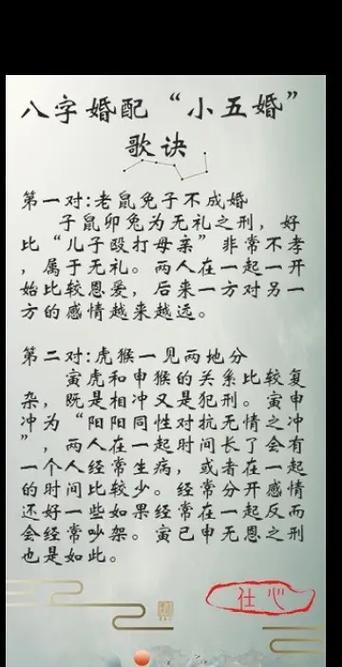 八字婚配“小五婚”
歌诀
第一对:老鼠免子不成婚
子鼠卯兔为无礼之刑，好
比“儿子殴打母亲”非常不孝
，属于无礼。两人在一起一开
始比较恩爱，后来一方对另一
方的感情越来越远。
第二对:虎猴一见两地分
寅虎和申猴的关系比较复
杂，既是相冲又是犯刑。寅申
冲为“阳阳同性对抗无情之冲
”，两人在一起时间长了会有
一个人经常生病，或者在一起
的时间比较少。经常分开感情
还好一些如果经常在一起反而
会经常吵架。寅已申无恩之刑
也是如此。
任心